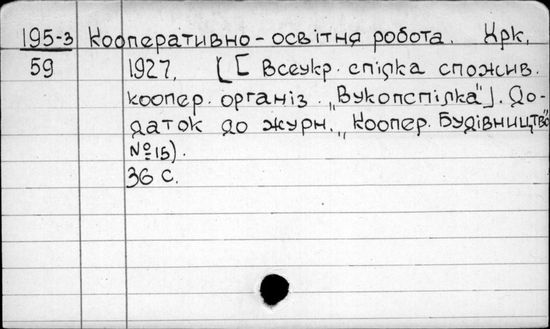 195-3 Кооперативно-освітня робота. Хрк,
59 1927, [[Всеукр. спілка спожив.
коопер. організ. „Вукопспілка"]. До-
даток до журн. „Коопер. Будівництво"
№15).
36 с.